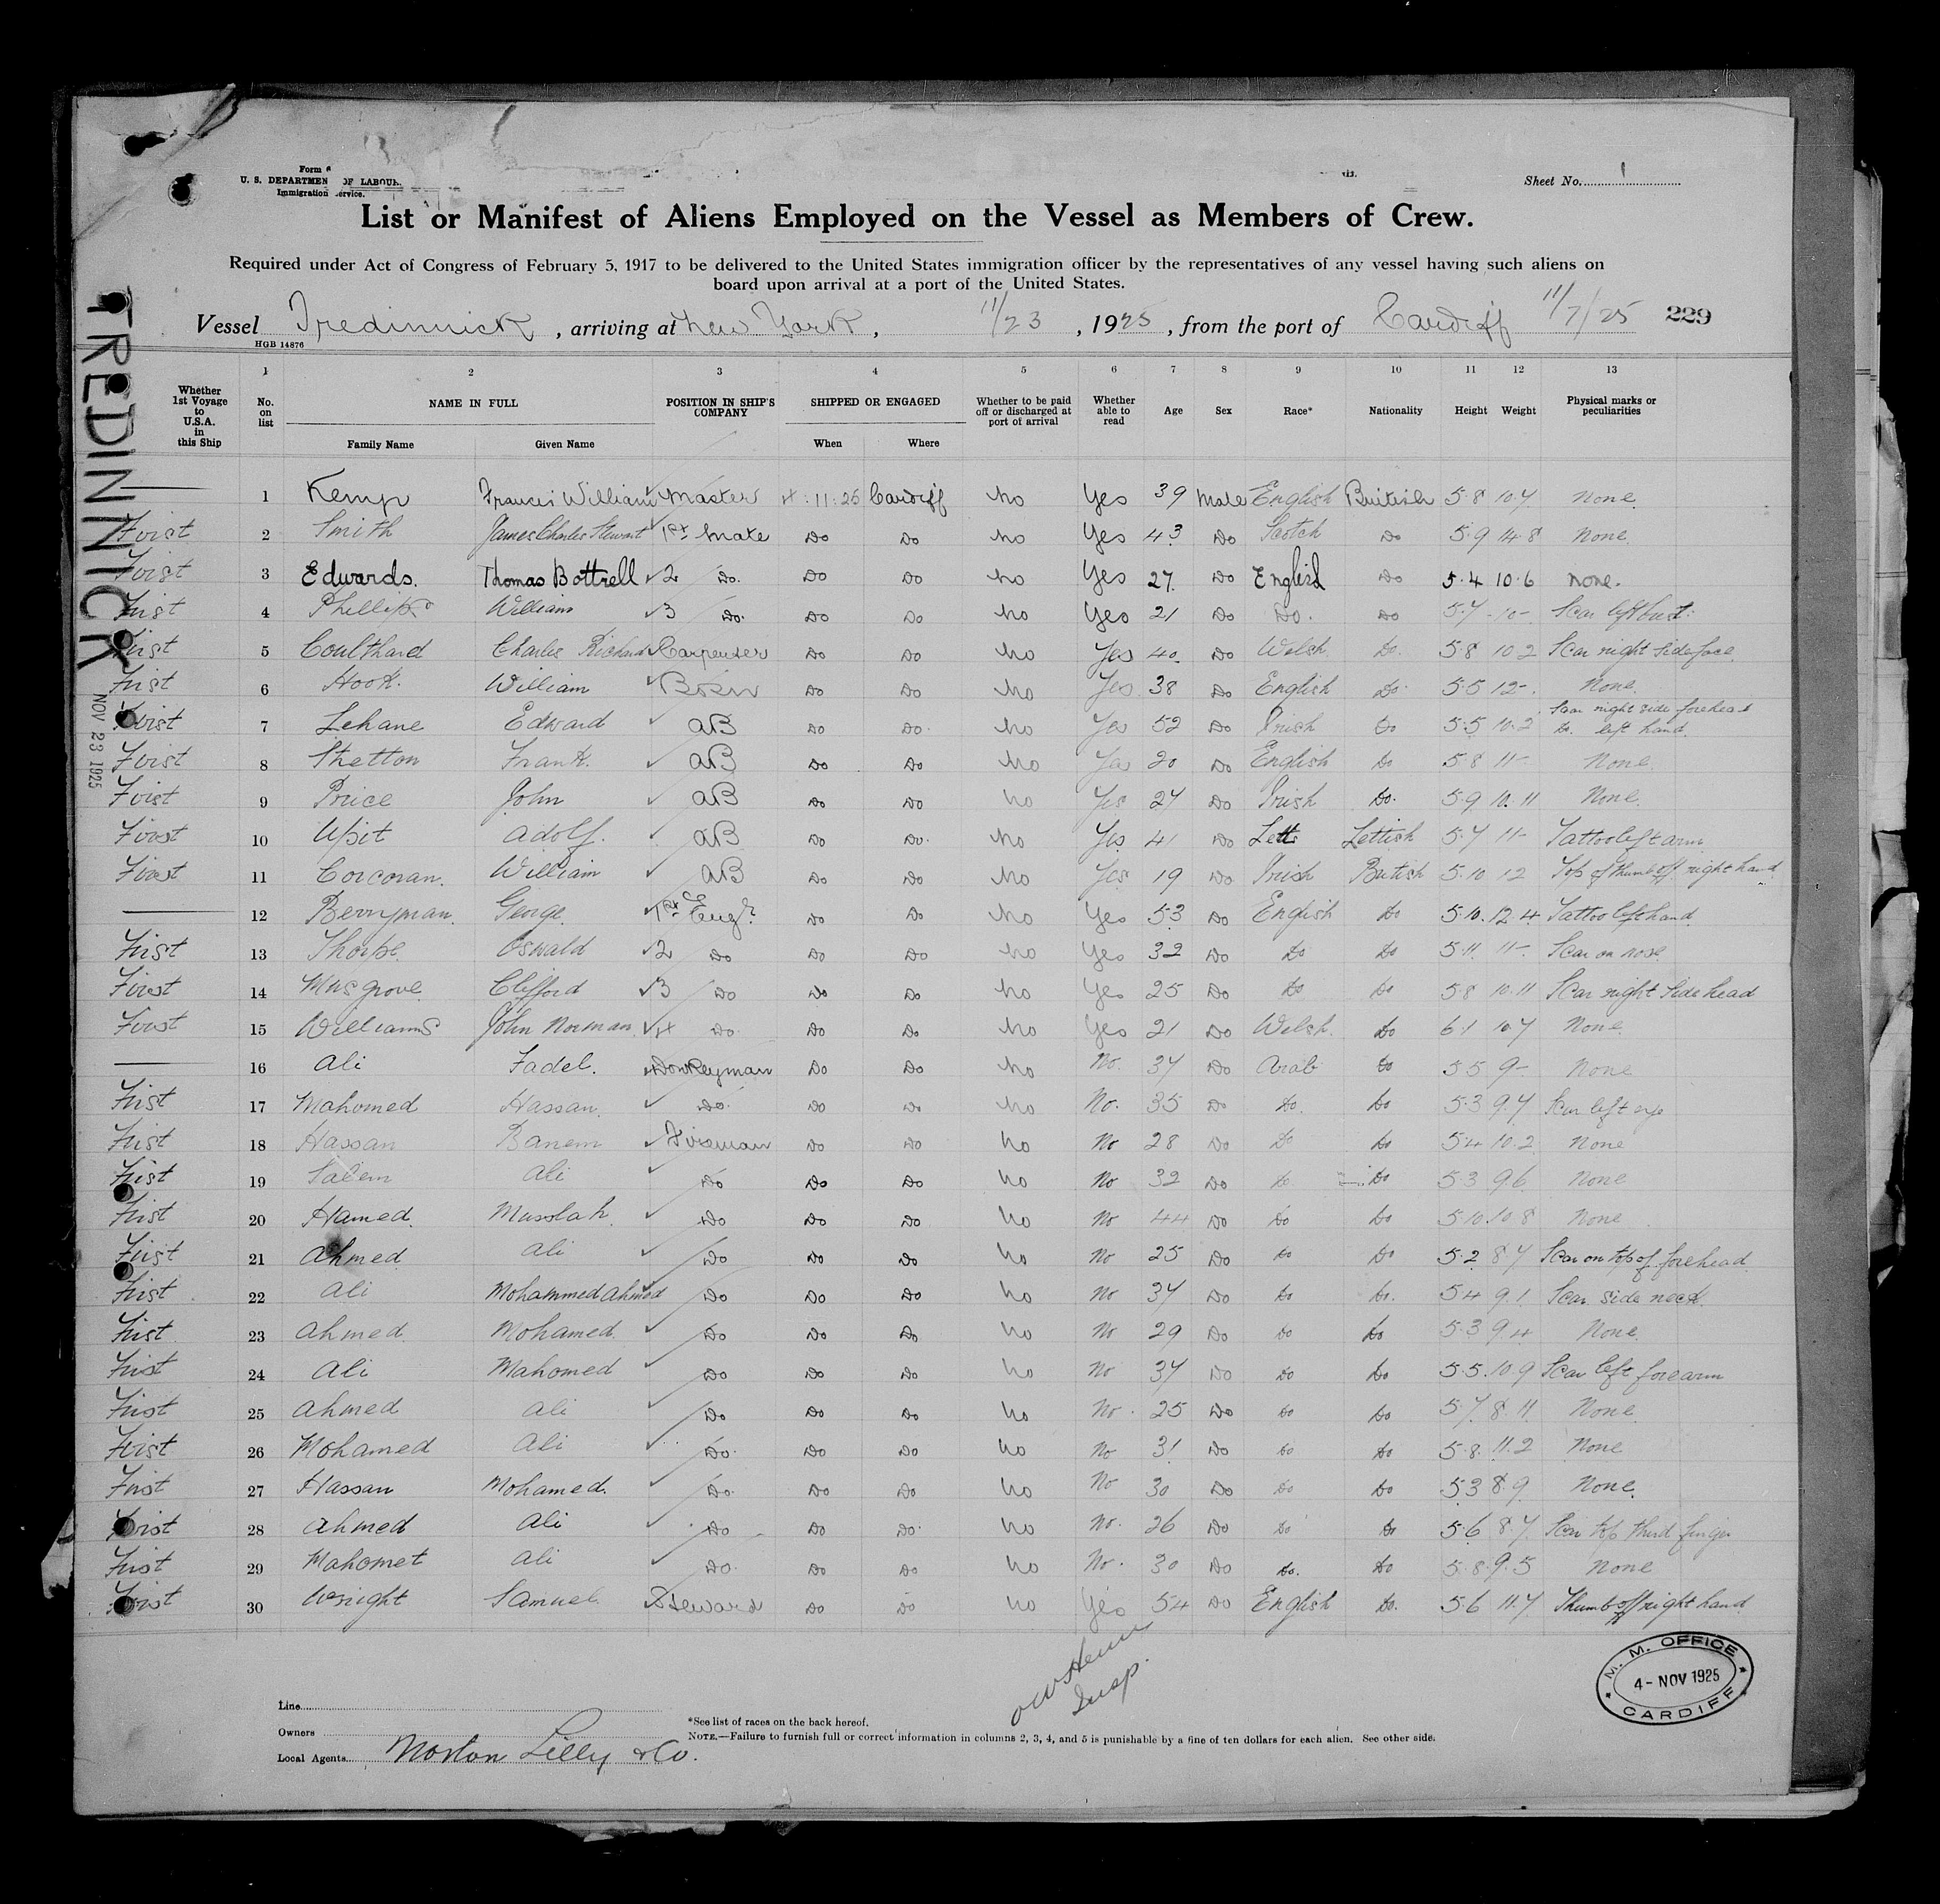 Form
U. S. DEPARTMEN OF LABOUR.
Immigration Service.
Sheet No. 1
List or Manifest of Aliens Employed on the Vessel as Members of Crew.
Required under Act of Congress of February 5, 1917 to be delivered to the United States immigration officer by the representatives of any vessel having such aliens on
board upon arrival at a port of the United States.
Vessel Tredinnick, arriving at New York, 11/23, 1925, from the port of Cardiff 11/7/25 229
HGB 14876
TREDINNICK
NOV 23 1925
1 2 3 4 5 6 7 8 9 10 11 12 13
Whether 1st Voyage to U.S.A. in this Ship No. on list NAME IN FULL POSITION IN SHIP'S COMPANY SHIPPED OR ENGAGED Whether to be paid off or discharged at port of arrival Whether able to read Age Sex Race* Nationality Height Weight Physical marks or peculiarities
Family Name Given Name When Where
1 Kemp Francis William Master 4.11.25 Cardiff No Yes 39 Male English British 5.8 10.7 None
First 2 Smith James Charles Stewart 1st Mate Do Do No Yes 43 Do Scotch Do 5.9 14.8 None
First 3 Edwards. Thomas Bottrell 2 Do. Do Do No Yes 27. Do English Do 5.4 10.6 None.
First 4 Phillips William 3 Do. Do Do No Yes 21 Do Do. Do 5.7 10- Scar left
First 5 Coulthard Charles Richard Carpenter Do Do No Yes 40. Do Welsh Do. 5.8 10 2 Scar right side face
First 6 Hook. William Bosn Do Do No Yes 38 Do English Do. 5.5 12-. None.
First 7 Lehane Edward AB Do Do. No Yes 52 Do Irish Do 5.5 10.2 Scar right side forehead Do. left hand.
First 8 Stretton Frank. AB Do Do No Yes 20 Do English Do 5.8 11- None
First 9 Price John AB Do Do No Yes 27 Do Irish Do. 5.9 10.11 None.
First 10 Upit Adolf. AB Do Do. No Yes 41 Do Lett Lettish 5.7 11- Tattoo left arm
First 11 Corcoran. William AB Do Do No Yes 19 Do Irish British 5.10 12 Top of thumb off right hand
12 Berryman. George. 1st Engr. Do Do No Yes 53 Do English Do 5.10. 12.4 Tattoo left hand
First 13 Thorpe. Oswald 2 Do Do Do No Yes 32 Do Do Do 5.11. 11- Scar on nose.
First 14 Musgrove. Clifford 3 Do Do Do No Yes 25 Do Do Do 5.8 10.11 Scar right side head
First 15 Williams John Norman 4 Do Do Do No Yes 21 Do Welsh. Do 6.1 10.7 None.
16 Ali Fadel. Donkeyman Do Do No No. 37 Do Arab Do 5.5 9- None
First 17 Mahomed Hassan. Do. Do Do No No. 35 Do Do. Do 5.3 9.7 Scar left eye
First 18 Hassan Banem Fireman Do Do No No 28 Do Do Do 5.4 10.2 None
First 19 Salem Ali Do Do Do No No 32 Do Do Do 5.3 9.6 None
First 20 Hamed. Musslah. Do Do Do No No 44 Do Do Do 5.10. 10 8 None
First 21 Ahmed Ali Do Do Do No No 25 Do Do Do 5.2 8.7 Scar on top of forehead.
First 22 Ali Mohammed Ahmed Do Do Do No No 37 Do Do Do. 5.4 9.1 Scar side neck.
First 23 Ahmed. Mohamed. Do Do Do No No 29 Do Do Do 5.3 9.4 None.
First 24 Ali Mahomed Do Do Do No No 37 Do Do Do 5.5. 10.9 Scar left forearm
First 25 Ahmed Ali Do Do Do No No. 25 Do Do Do 5.7. 8.11. None
First 26 Mohamed Ali Do. Do Do No No 31 Do Do Do 5.8. 11.2 None
First 27 Hassan Mohamed. Do. Do Do No No 30 Do Do Do 5.3 8.9 None.
First 28 Ahmed Ali Do Do Do. No No. 26 Do Do Do 5.6 8.7. Scar top third finger
First 29 Mahomet Ali Do. Do Do No No. 30 Do Do. Do 5.8. 9.5 None
First 30 Wright Samuel. Steward Do Do No Yes 54 Do English Do. 5.6 11.7 Thumb off right hand
Insp.
M. M. OFFICE
4 - NOV 1925
CARDIFF
Line
*See list of races on the back hereof.
Owners
NOTE.—Failure to furnish full or correct information in columns 2, 3, 4, and 5 is punishable by a fine of ten dollars for each alien. See other side.
Local Agents Norton Lilly & Co.